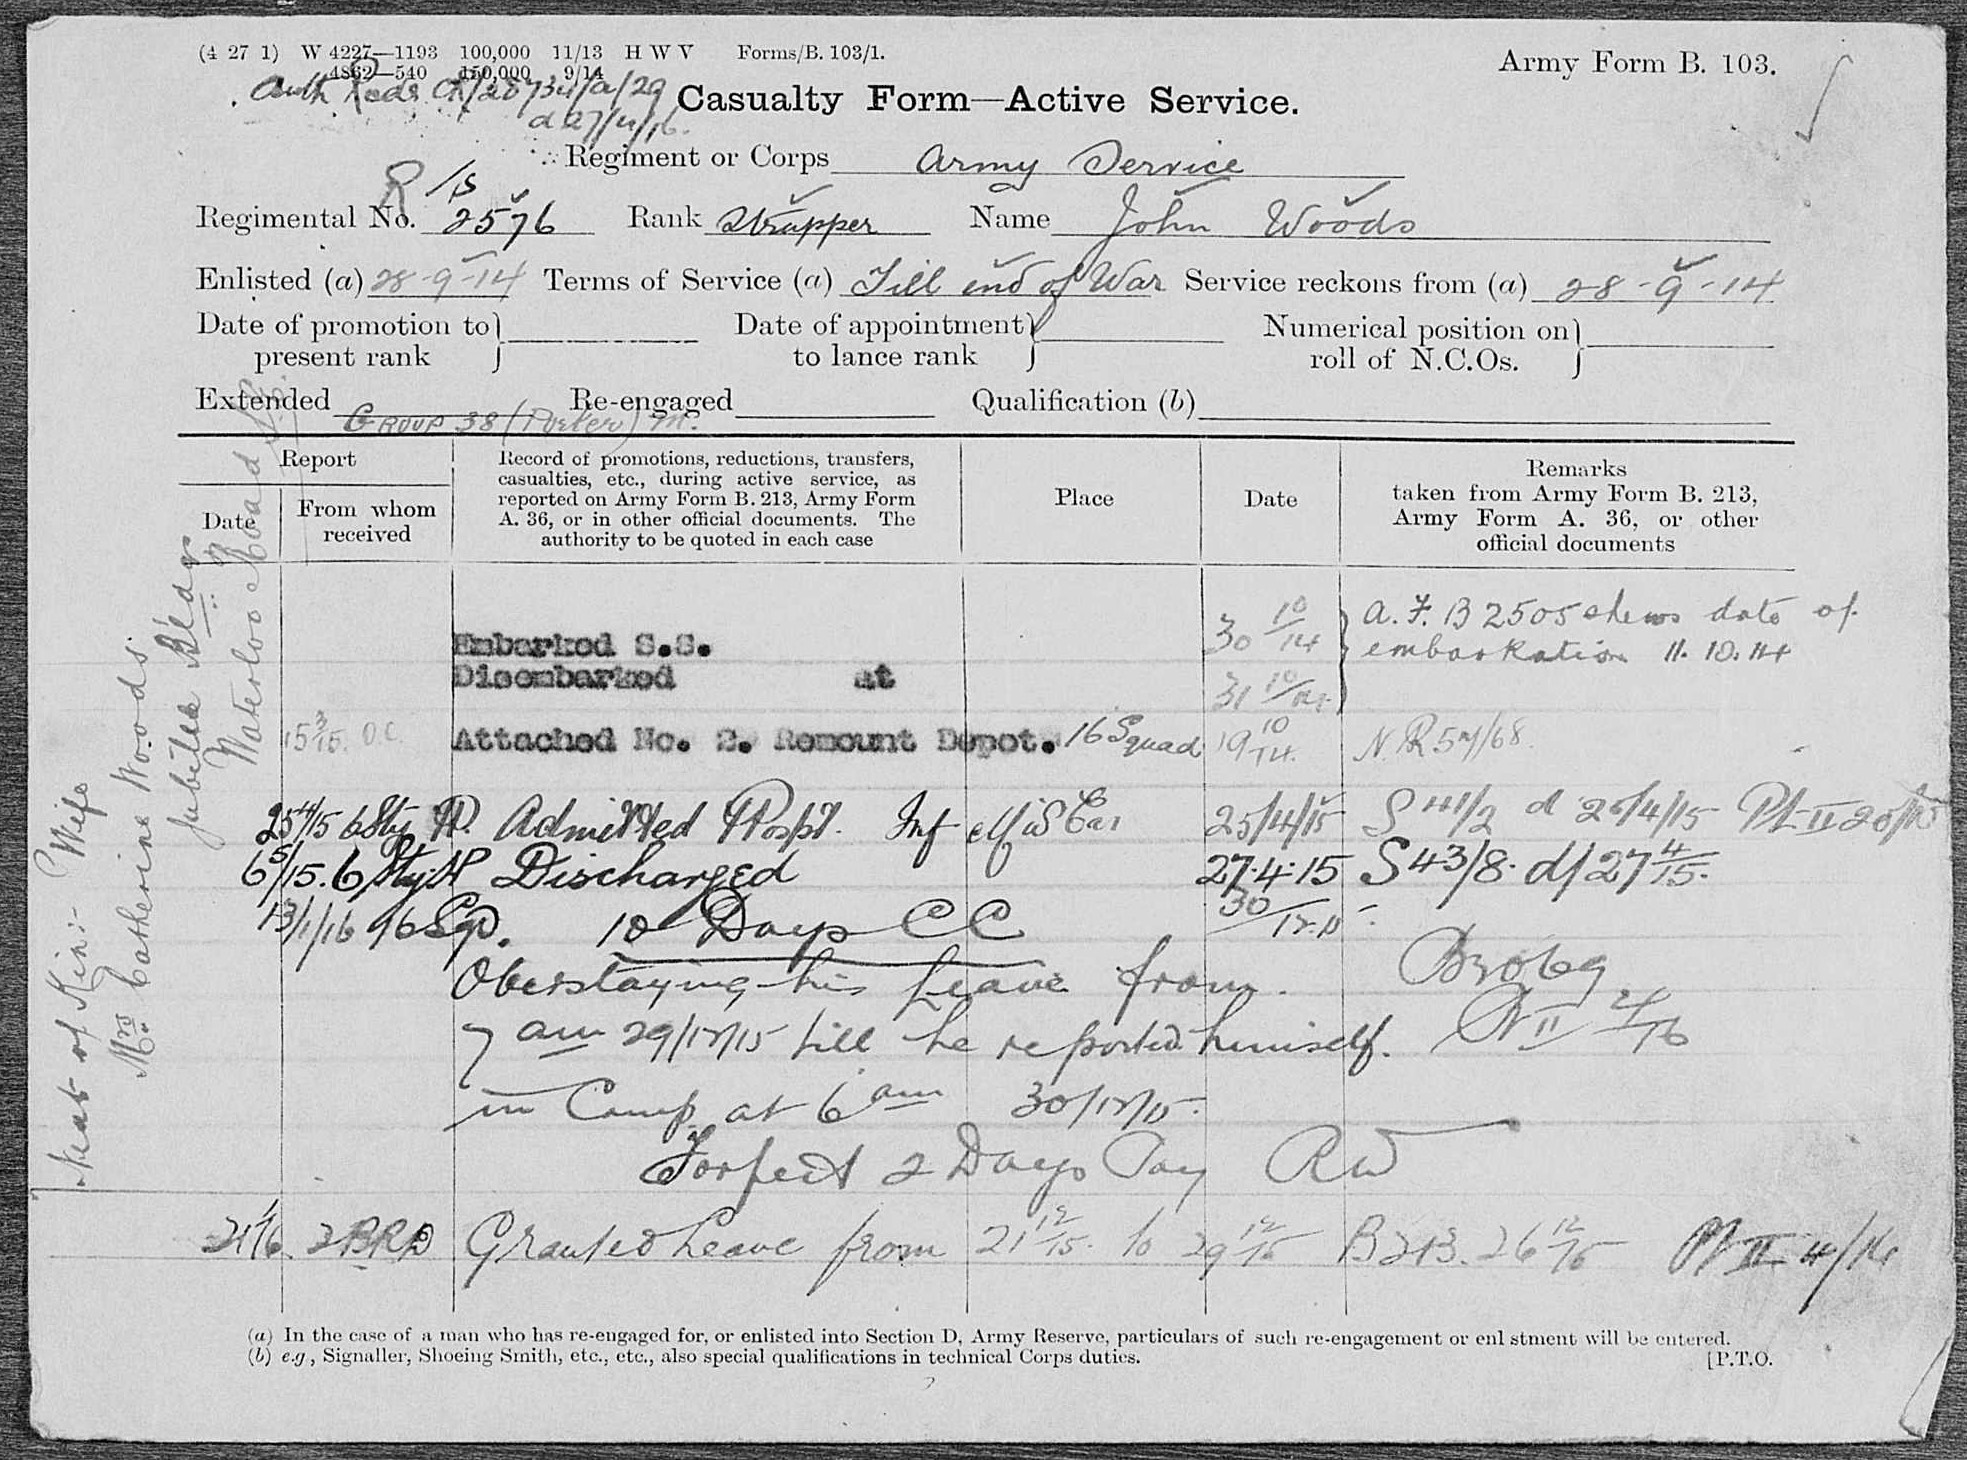 (4 27 1) W 4227—1193 100,000 11/13 H W V Forms/B. 103/1.
4862—540 150,000 9/14
Army Form B. 103.
Auth Reds
Casualty Form—Active Service.
Regiment or Corps Army Service
R/S
Regimental No. 2576 Rank Strapper Name John Woods
Enlisted (a) 28-9-14 Terms of Service (a) Till end of War Service reckons from (a) 28-9-14
Date of promotion to present rank
Date of appointment to lance rank
Numerical position on roll of N.C.Os.
Extended Re-engaged Qualification (b)
Group 38 (Porter) M.
Report
Date
From whom received
Record of promotions, reductions, transfers, casualties, etc., during active service, as reported on Army Form B. 213, Army Form A. 36, or in other official documents. The authority to be quoted in each case
Place
Date
Remarks taken from Army Form B. 213, Army Form A. 36, or other official documents
Embarked S.S. 30 10/14 A.F. B 2505 shews date of
Disembarked at 31 10/14 embarkation 11.10.14
15 3/15. O.C. Attached No. 2. Remount Depot. 16 Squad 19 10/14.
25 4/15 6 Sty H. Admitted Hospt. Inf 25/4/15 S 41/2 d 26/4/15 Pt II
6 5/15. 6 Sty. H Discharged 27.4.15 S 43/8. d/27 4/15.
13/1/16 16 Sqd. 10 Days CC 30/12.15
Overstaying his Leave from B2069
7 am 29/12/15 till he reported himself. Pt II 2/16
in Camp at 6 am 30/12/15.
Forfeit 2 Days Pay RW
2 BRD Granted Leave from 21 12/15. to 29 12/15 B213. 26 12/15 Pt II 4/16
Next of Kin:- Wife
Mrs Catherine Woods
Jubilee Bldgs
Waterloo Road
(a) In the case of a man who has re-engaged for, or enlisted into Section D, Army Reserve, particulars of such re-engagement or enlistment will be entered.
(b) e.g, Signaller, Shoeing Smith, etc., etc., also special qualifications in technical Corps duties.
[P.T.O.